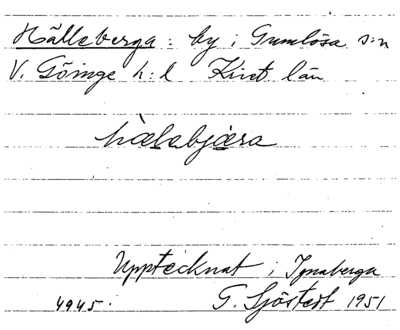 Hälleberga: by i Gumlösa s:n
V. Göinge h:d Krist. län
hàlabjæra
Upptecknat i Ignaberga
4945. G. Sjöstedt 1951